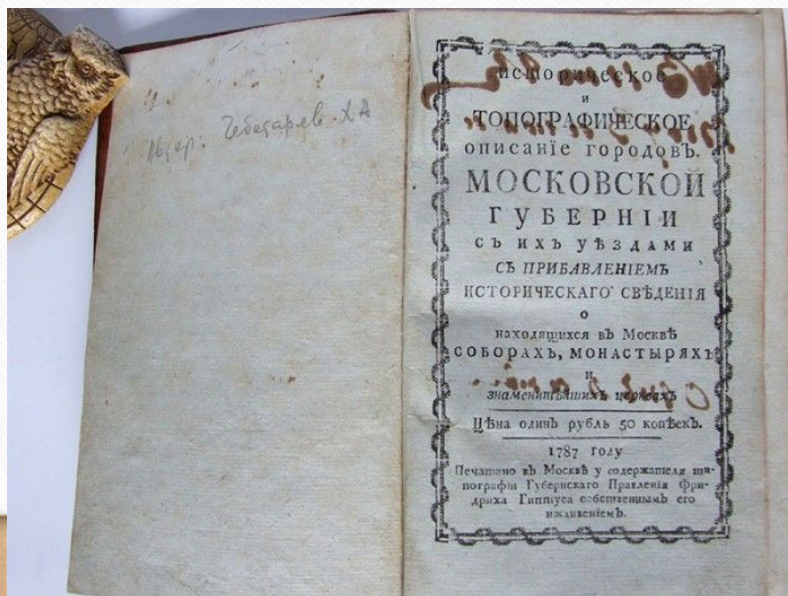 Автор. Чеботарев Х А
Историческое
и
ТОПОГРАФИЧЕСКОЕ
описанїе городовъ.
МОСКОВСКОЙ
ГУБЕРНІИ
СЪ ИХЪ УѢЗДАМИ
СЪ ПРИБАВЛЕНІЕМЪ
ИСТОРИЧЕСКАГО СВѢДЕНІЯ
О
находящихся въ Москвѣ
СОБОРАХЪ, МОНАСТЫРЯХЪ
и
знаменитѣйшихъ церквахъ
Цѣна одинъ рубль 50 копѣекъ.
1787 году
Печатано въ Москвѣ у содержателя ти-
пографіи Губернскаго Правленія Фри-
дриха Гиппіуса собственнымъ его
иждивеніемъ.